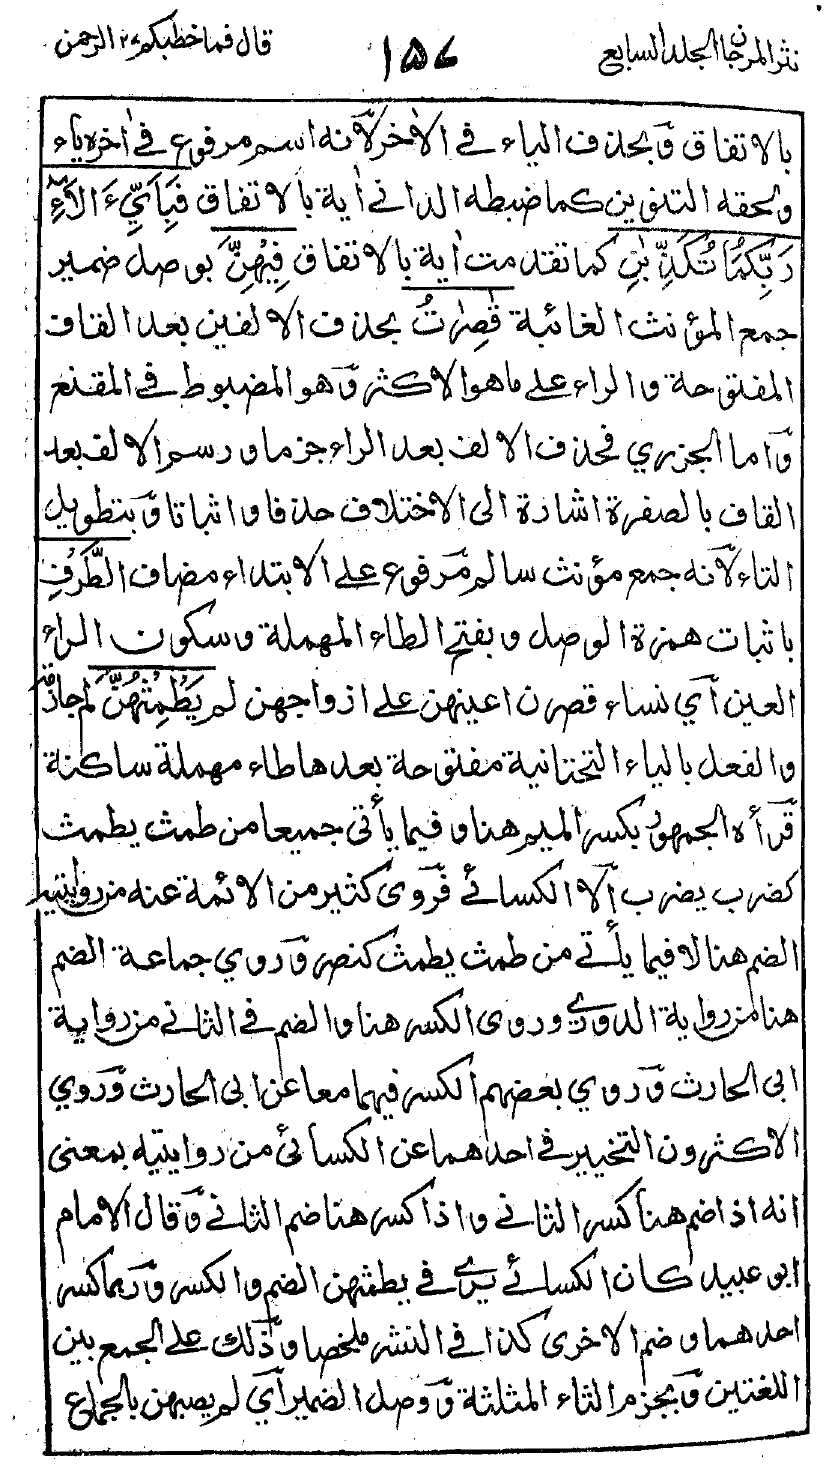 نثر المرجان الجلد السابع
١٥٧
قال فما خطبكم ٢٧ الرحمن
بالاتفاق وّبحذف الياء فے الاٰخر لاّنه اسم مرفوع فے اٰخره ياء
ولحقه التنوين كما ضبطه الدانے اٰية بالاتفاق فَبِاَيِّءَالَآءِ
رَبِّكُمَا تُكَذِّبٰنِ كما تقدمت اٰية بالاتفاق فِيْهِنَّ بوصل ضمير
جمع المؤنث الغائبة قٰصِرٰتُ بحذف الالفين بعد القاف
المفتوحة والراء علے ما هو الاكثر وّهو المضبوط فے المقنع
وّاما الجزري فحذف الالف بعد الراء جزما ورسم الالف بعد
القاف بالصفرة اشارة الى الاختلاف حذفا واثباتا وّبتطويل
التاء لاّنه جمع مؤنث سالم مّرفوع علے الابتداء مضاف الطَّرْفِ
باثبات همزة الوصل وبفتح الطاء المهملة وسكون الراء
العين اّي نساء قصرن اعينهن علے ازواجهن لم يَطْمِثْهُنَّ لم جازمة
والفعل بالياء التحتانية مفتوحة بعدها طاء مهملة ساكنة
قّرأه الجمهور بكسر الميم هنا وفيما يأتى جميعا من طمث يطمث
كضرب يضرب اّلا الكسائے فرّوى كثير من الائمة عنه من روايتيه
الضم هنا لا فيما يأتے من طمث يطمث كنصر وّروي جماعة الضم
هنا من رواية الدورے وروى الكسر هنا والضم فے الثانے من رواية
ابى الحارث وّروي بعضهم الكسر فيهما معا عن ابى الحارث وّروي
الاكثرون التخيير فے احدهما عن الكسائى من روايتيه بمعنى
انه اذا ضم هنا كسر الثانے واذا كسر هنا ضم الثانے وّقال الامام
ابو عبيد كان الكسائے يرے فے يطمثهن الضم والكسر وّربما كسر
احدهما وضم الاخرى كذا فے النشر ملخصا وذّلك علے الجمع بين
اللغتين وّبجزم الثاء المثلثة وّوصل الضمير اّي لم يصبهن بالجماع